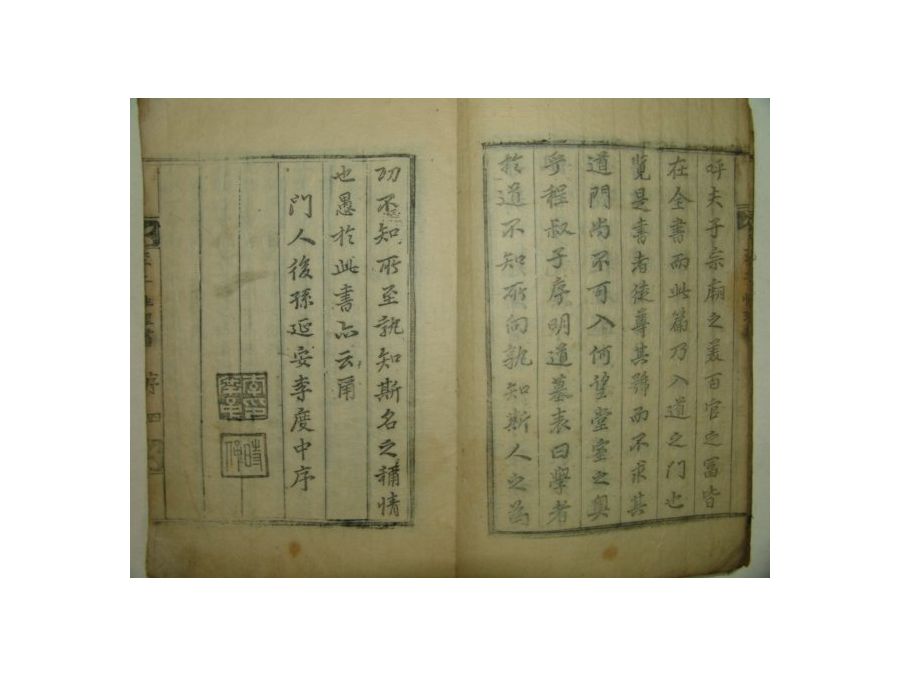 呼夫子宗廟之美百官之富皆
在全書而此篇乃入道之門也
覽是書者徒尊其號而不求其
道門尚不可入何望堂室之奧
乎程叔子序明道墓表曰學者
於道不知所向孰知斯人之爲
功不知所至孰知斯名之稱情
也愚於此書亦云爾
門人後孫延安李度中序
序 四
李度中
時仲